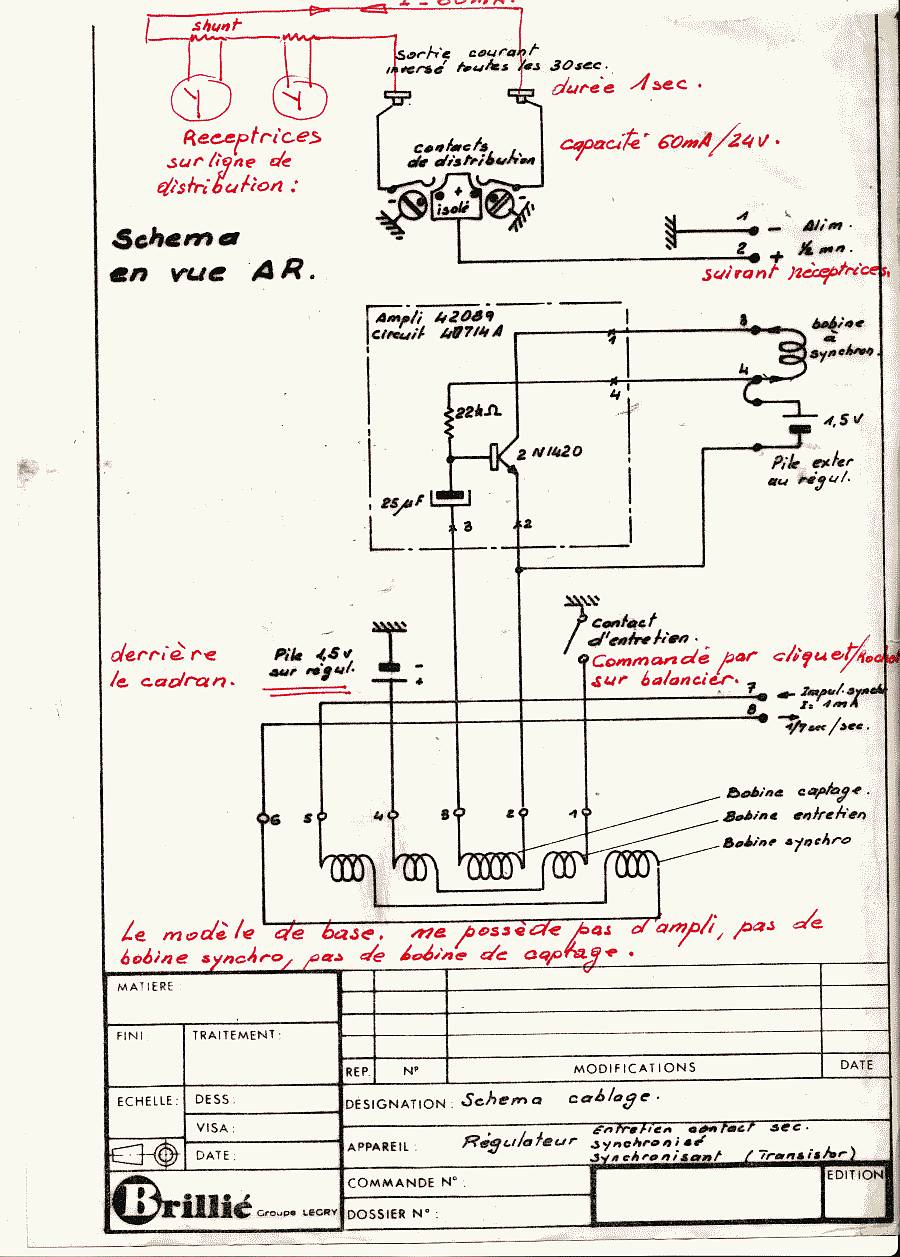 I = 60mA.
shunt
Sortie courant
inversé toutes les 30sec.
durée 1sec.
Receptrices
sur ligne de
distribution :
contacts
de distribution
capacité 60mA/24V.
- + -
isolé
Schema
en vue AR.
1 - Alim.
2 + ½ mn.
suivant réceptrices.
Ampli 42089
Circuit 40714A
1
3
bobine
à
synchron.
4
4
22kΩ
2N1420
1,5V
Pile exter
au régul.
25µF
3
2
derrière
le cadran.
Pile 1,5v
sur régul.
-
+
Contact
d'entretien.
Commandé par cliquet/
sur balancier.
7
Impul. synch
I= 1mA
8
1/7sec/sec.
6 5 4 3 2 1
Bobine captage.
Bobine entretien
Bobine synchro
Le modèle de base. me possède pas d'ampli, pas de
bobine synchro, pas de bobine de captage.
MATIERE:
FINI
TRAITEMENT:
REP. N° MODIFICATIONS DATE
ECHELLE:
DESS:
VISA:
DATE:
DÉSIGNATION: Schema cablage.
APPAREIL: Régulateur
Entretien contact sec.
synchronisé
synchronisant (Transistor)
COMMANDE N°:
DOSSIER N°:
EDITION
Brillié Groupe LEGRY